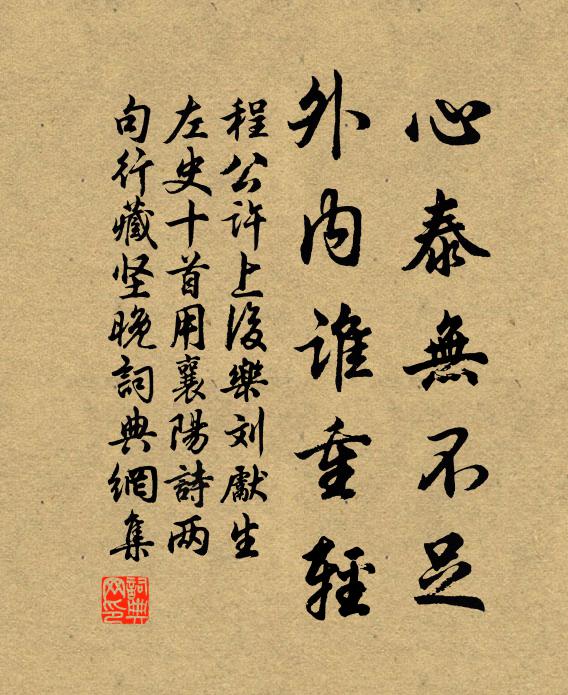 心泰無不足
外内誰重輕
程公許上後樂刘獻生
左史十首用襄陽詩两
句行藏坚晚詞典網集
詞典网印